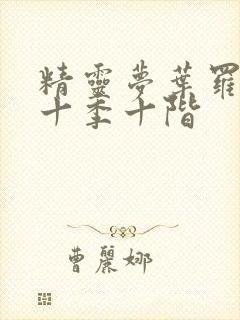 精靈夢葉羅
十季十階
曹麗娜